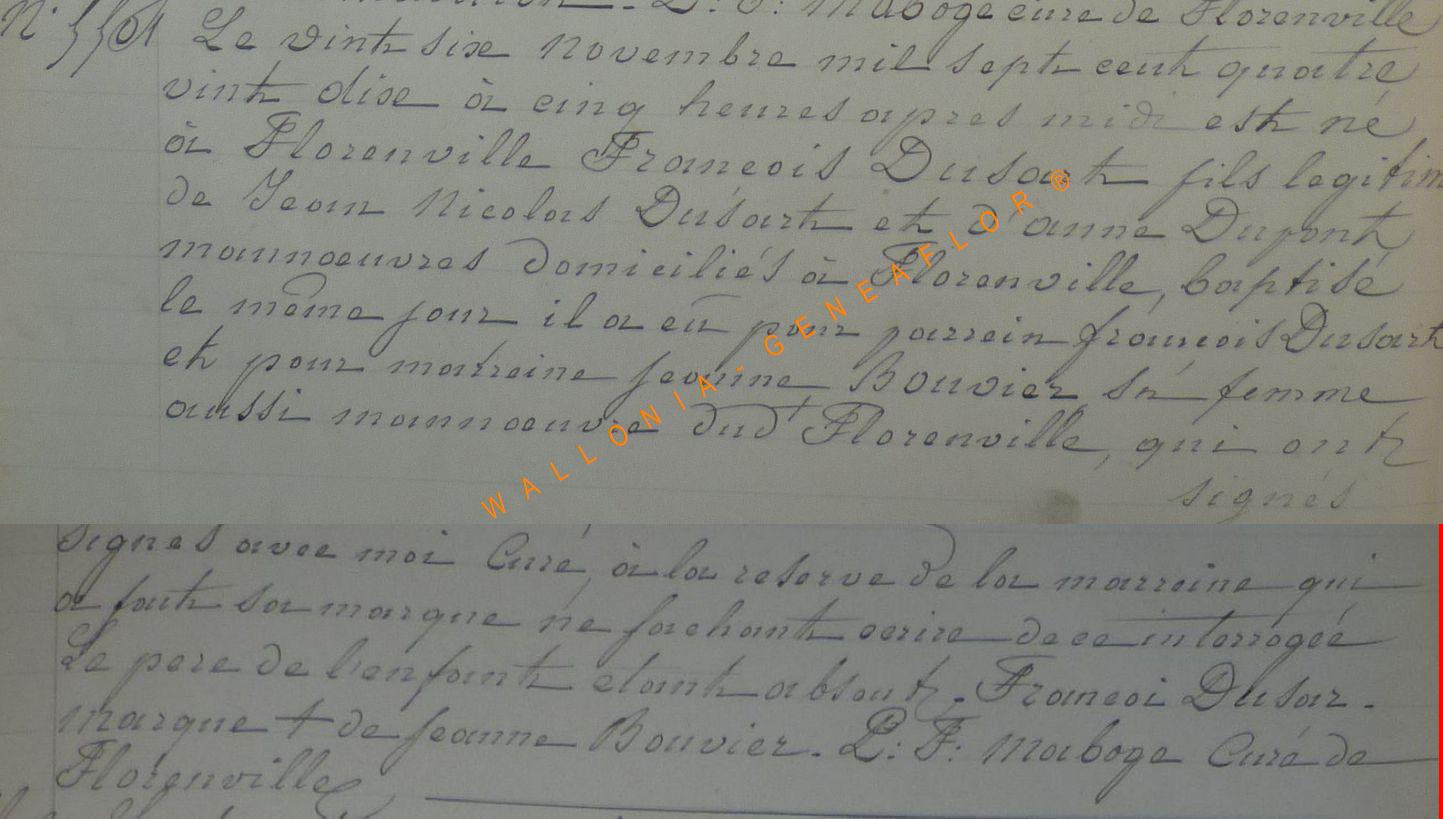 L: F: Maboge curé de Florenville
N° 5501 Le vint six novembre mil sept cent quatre
vint dix à cinq heures apres midi est né
à Florenville Francois Dusart fils legitim
de Jean Nicolas Dusart et d'anne Dupont
mannoeuvres domiciliés à Florenville, baptisé
le même jour il a eü pour parrein françois Dusart
et pour matreine jeanne Bouvier sa femme
aussi mannoeuvre dud.t Florenville, qui ont
signés
signés avec moi Curé, à la reserve de la marreine qui
a fait sa marque ne sachant ecrire de ce interrogée
Le pere de l'enfant etant absent. Francoi Dusar -
marque + de jeanne Bouvier. L: F: Maboge Curé de
Florenville
WALLONIA - GENEAFLOR ®